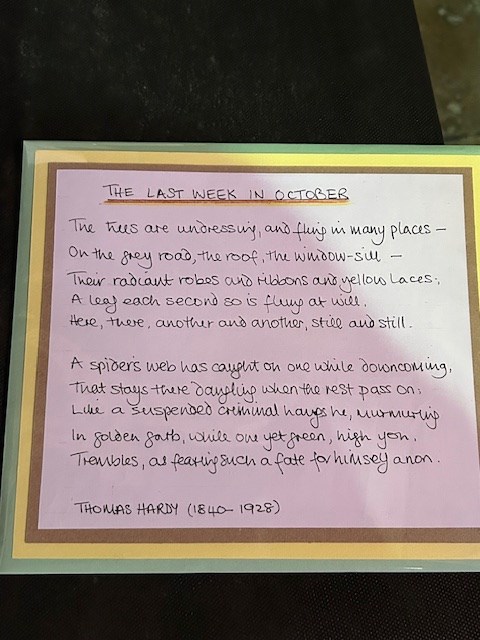 THE LAST WEEK IN OCTOBER
The trees are undressing, and fling in many places —
On the grey road, the roof, the window-sill —
Their radiant robes and ribbons and yellow laces;
A leaf each second so is flung at will,
Here, there, another and another, still and still.
A spider's web has caught on one while downcoming,
That stays there dangling when the rest pass on;
Like a suspended criminal hangs he, murmuring
In golden garb, while one yet green, high yon,
Trembles, as fearing such a fate for himself anon.
THOMAS HARDY (1840-1928)